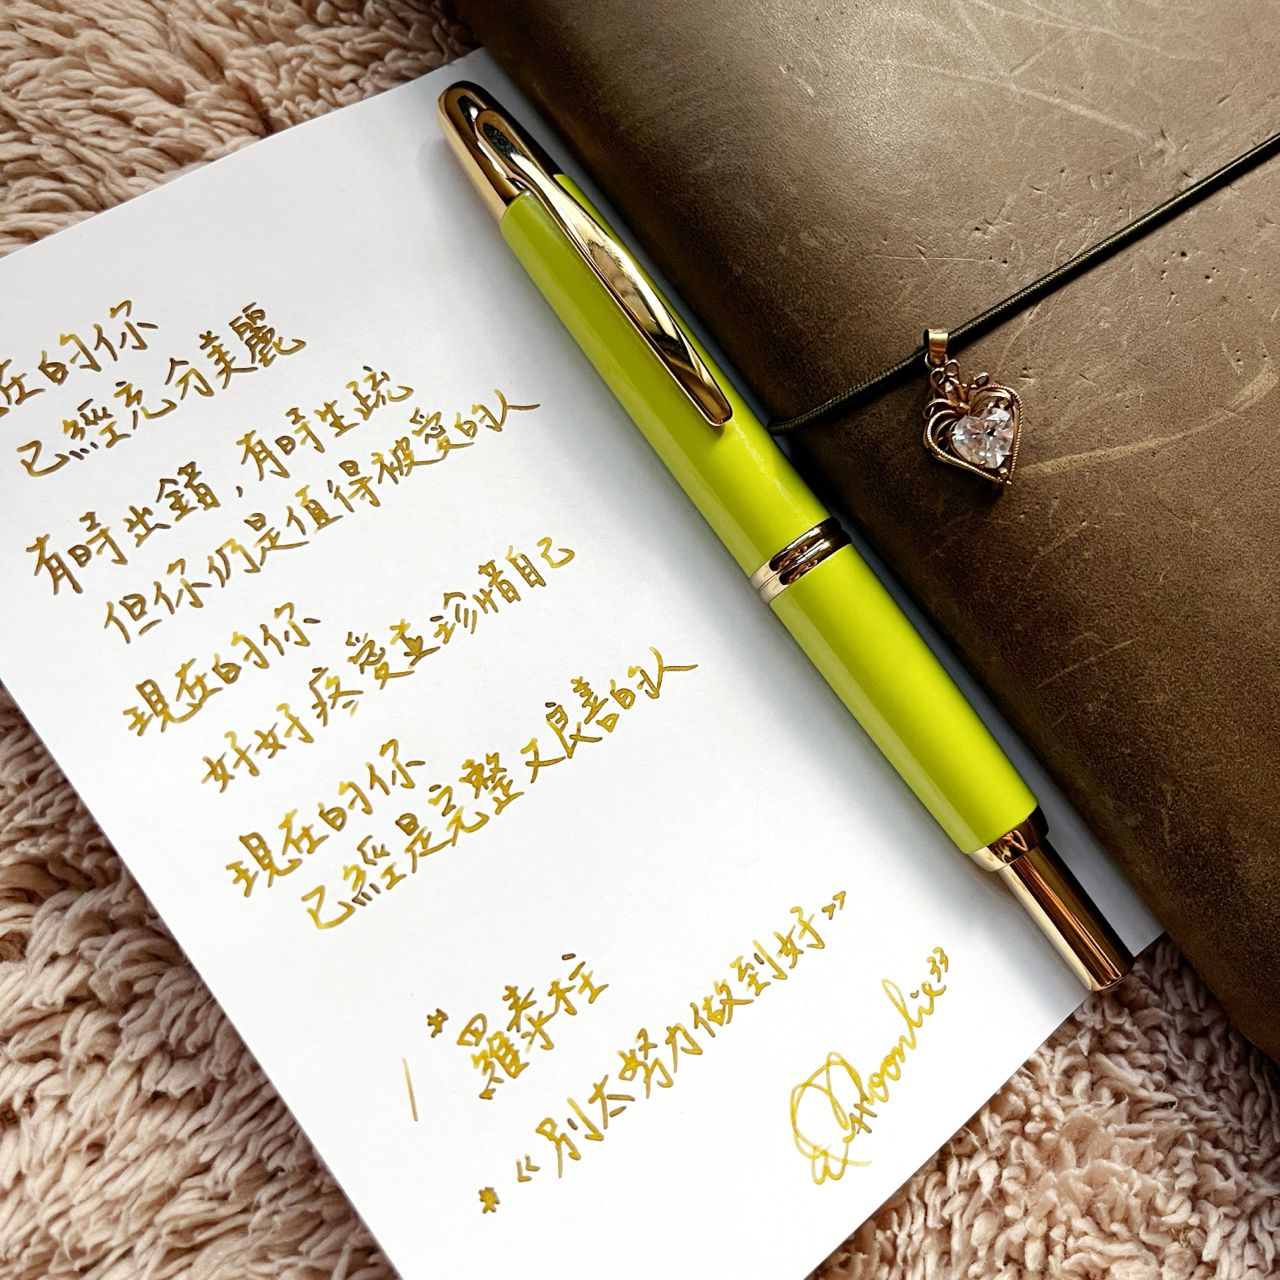 在的你
已經充分美麗
有時出錯，有時生疏
但你仍是值得被愛的人
現在的你
好好疼愛並珍惜自己
現在的你
已經是完整又良善的人
/ * 羅泰柱
* 《別太努力做到好》